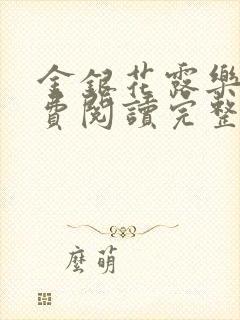 金銀花露樂
費閱讀完整
麼萌